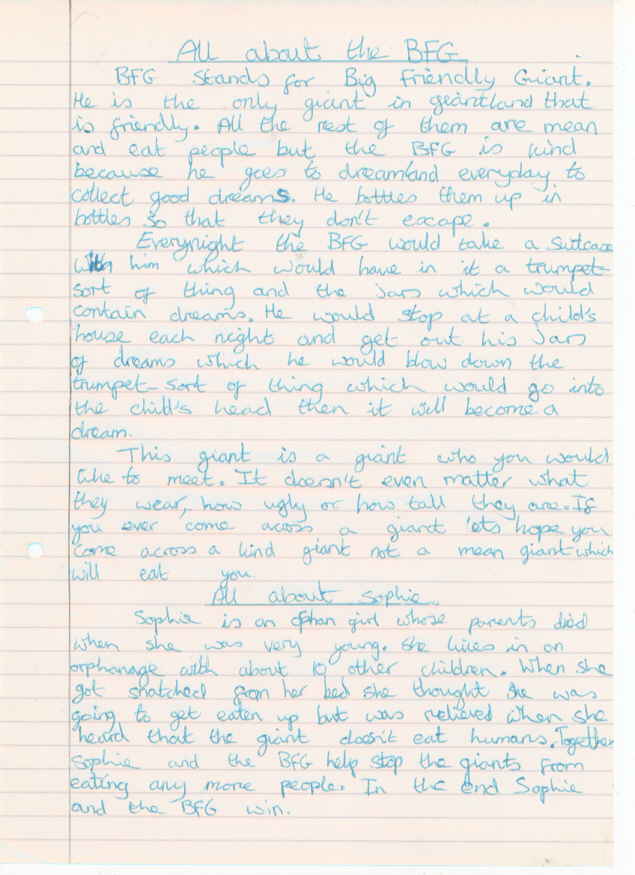 All about the BFG
BFG Stands for Big Friendly Giant.
He is the only giant in geantland that
is friendly. All the rest of them are mean
and eat people but the BFG is kind
because he goes to dreamland everyday to
collect good dreams. He bottles them up in
bottles so that they don't escape.
Everynight the BFG would take a suitcase
with him which would have in it a trumpet-
sort of thing and the Jars which would
contain dreams. He would stop at a child's
house each night and get out his Jars
of dreams which he would blow down the
trumpet-sort of thing which would go into
the child's head then it will become a
dream.
This giant is a giant who you would
like to meet. It doesn't even matter what
they wear, how ugly or how tall they are. If
you ever come across a giant 'ets hope you
come across a kind giant not a mean giant which
will eat you.
All about Sophie.
Sophie is an ophan girl whose parents died
when she was very young. She lives in an
orphanage with about 10 other children. When she
got snatched from her bed she thought she was
going to get eaten up but was relieved when she
heard that the giant doesn't eat humans. Together
Sophie and the BFG help stop the giants from
eating any more people. In the end Sophie
and the BFG win.